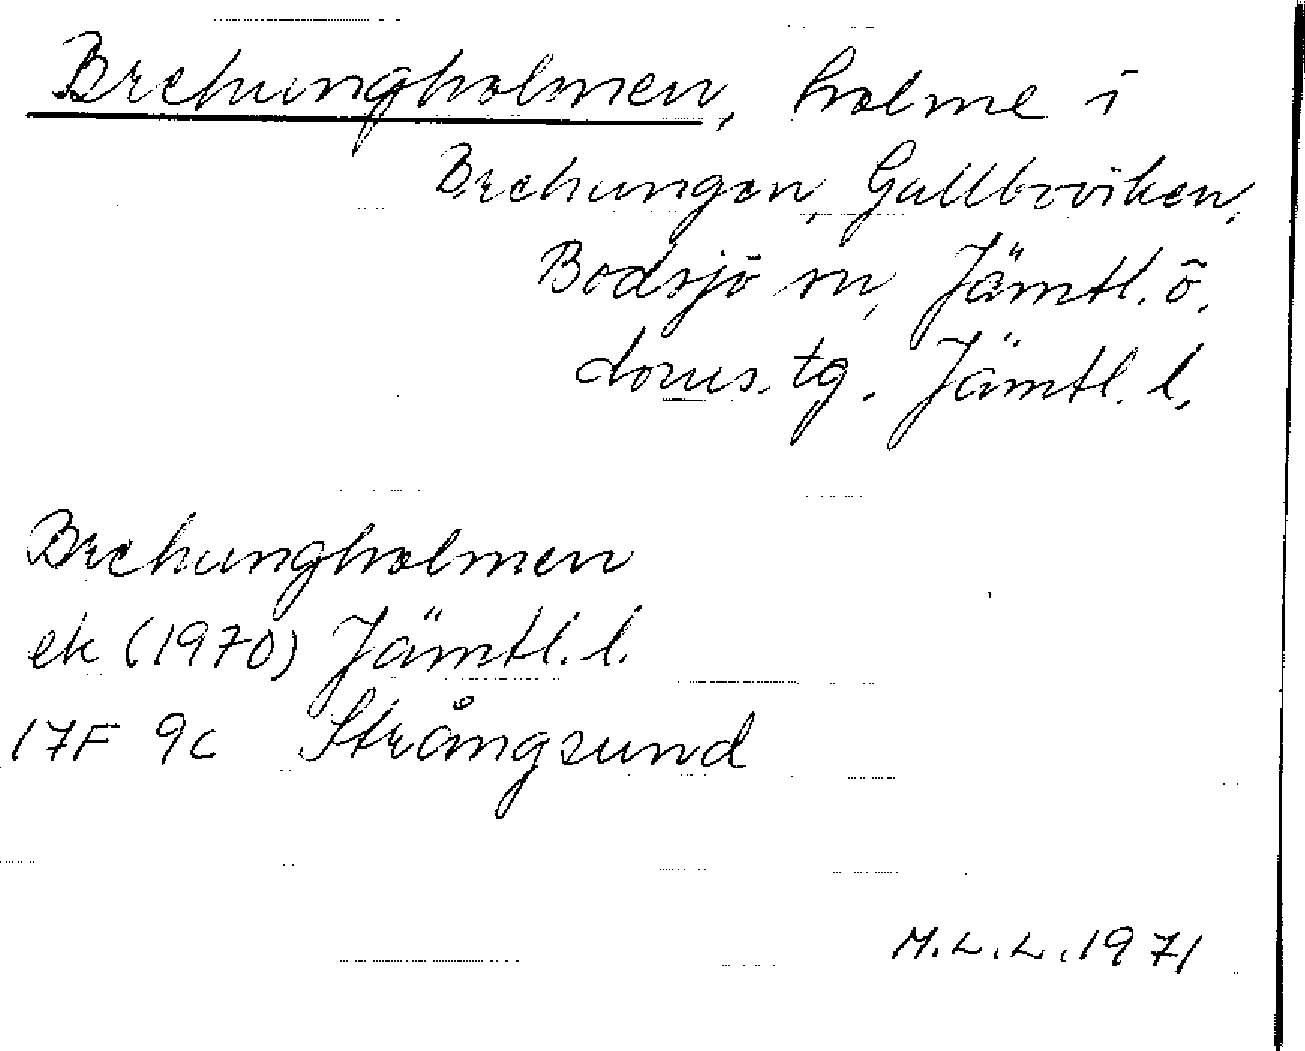 Brekungholmen, holme i
Brekungen, Gallboviken,
Bodsjö sn, Jämtl. ö.
doms. tg. Jämtl. l.
Brekungholmen
ek (1970) Jämtl. l.
17F 9c Strångsund
M.L.L. 1971